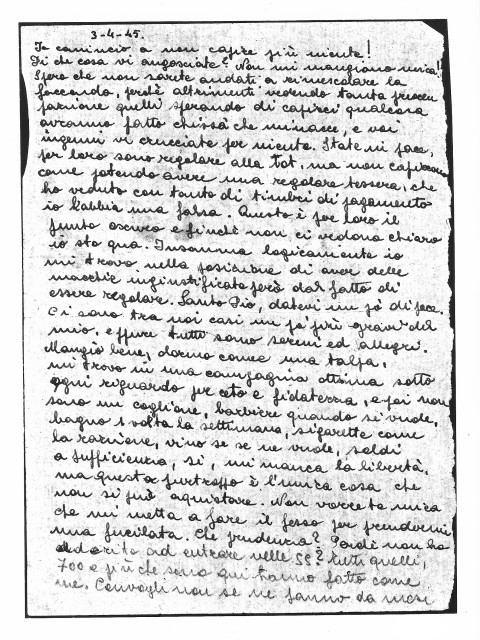 3-4-45.
Io comincio a non capire più niente!
Di che cosa vi angosciate? Non mi mangiano mica!
Spero che non sarete andati a rimescolare la
faccenda, perchè altrimenti vedendo tanta preoccu
pazione quelli sperando di capirci qualcosa
avranno fatto chissà che minacce, e voi
ingenui vi crucciate per niente. State in pace,
per loro sono regolare alla Tot, ma non capiscono
come potendo avere una regolare tessera, che
ho veduto con tanto di timbri di pagamento
io l'abbia una falsa. Questo è per loro il
punto oscuro e finchè non ci vedono chiaro
io sto qua. Insomma logicamente io
mi trovo nella posizione di aver delle
macchie ingiustificate però dal fatto di
essere regolare. Santo Dio, datevi un pò di pace.
Ci sono tra noi casi un pò più gravi del
mio, eppure tutti sono sereni ed allegri.
Mangio bene, dormo come una talpa,
mi trovo in una compagnia ottima sotto
ogni riguardo per ceto e fidatezza, e poi non
sono un coglione, barbiere quando si vuole,
bagno 1 volta la settimana, sigarette come
la razione, vino se se ne vuole, soldi
a sufficienza, si, mi manca la libertà,
ma questa purtroppo è l'unica cosa che
non si può aquistare. Non vorrete mica
che mi metta a fare il fesso per prendermi
una fucilata. Che prudenza? Perchè non ho
aderito ad entrare nelle SS? tutti quelli,
700 e più che sono qui hanno fatto come
me. Convogli non se ne fanno da mesi